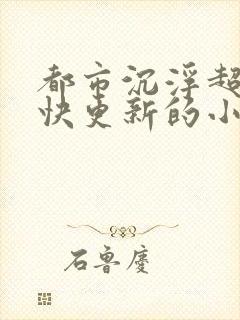 都市沉浮超
快更新的小
石鲁庆